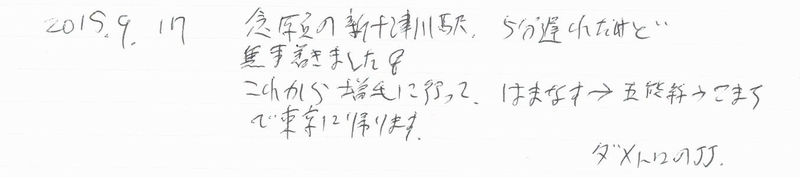 2015.9.17 念願の新十津川駅、5分遅れだけど
無事着きました。
これから増毛に行って、はまなす→五能線→こまち
で東京に帰ります。
ダメトロのJJ.